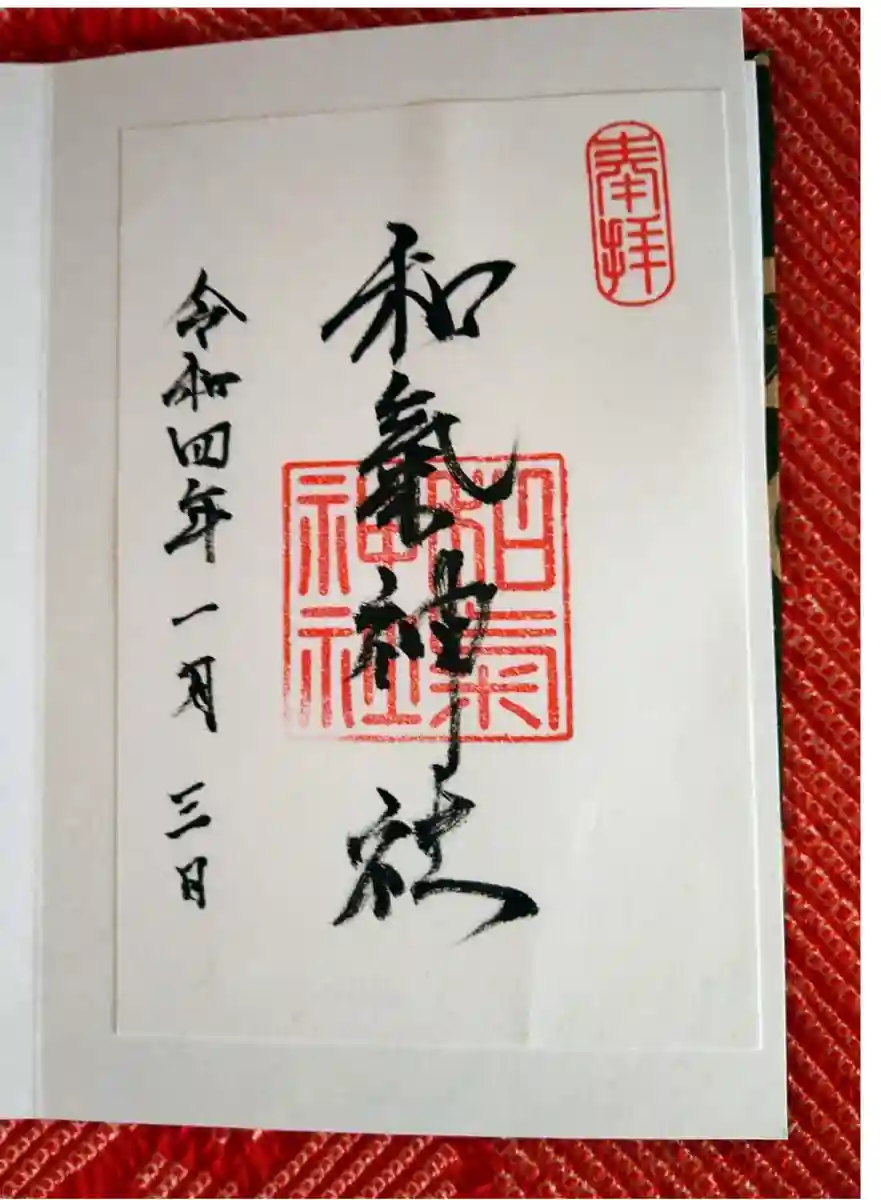 奉拝
和氣神社
和氣神社
令和四年一月三日